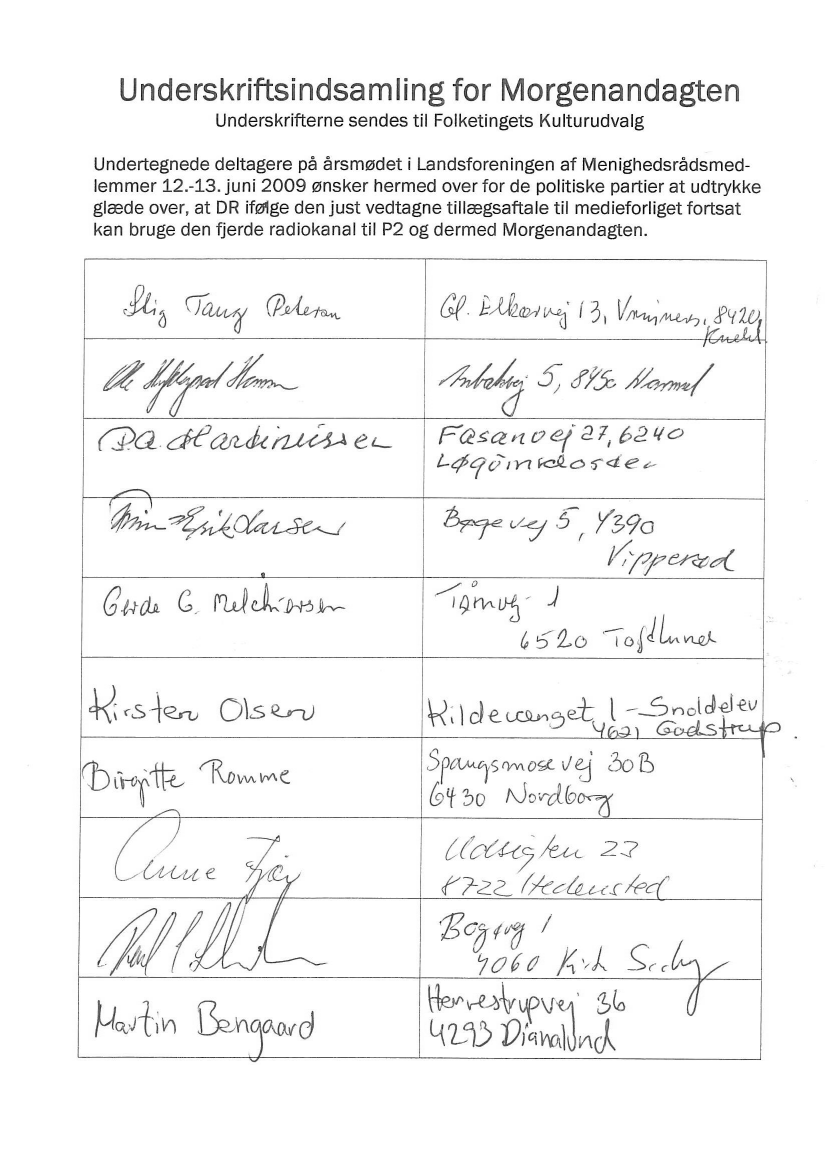 Underskriftsindsamling for Morgenandagten
Underskrifterne sendes til Folketingets Kulturudvalg
Undertegnede deltagere på årsmødet i Landsforeningen af Menighedsrådsmed-
lemmer 12.-13. juni 2009 ønsker hermed over for de politiske partier at udtrykke
glæde over, at DR ifølge den just vedtagne tillægsaftale til medieforliget fortsat
kan bruge den fjerde radiokanal til P2 og dermed Morgenandagten.
Stig Tang Petersen
Gl. Elkærvej 13, 8420
Knebel
Ole
5, 8450 Hammel
P.A. Martinussen
Fasanvej 27, 6240
Løgumkloster
Erik Larsen
Bøgevej 5, 4390
Vipperød
Gerde G. Melchiorsen
1
6520 Toftlund
Kirsten Olsen
Kildevænget 1 - Snoldelev
4621 Gadstrup
Birgitte Romme
Spangsmosevej 30B
6430 Nordborg
Anne Fjøs
Udsigten 23
8722 Hedensted
1
4060 Kirk Såby
Martin Bengaard
Herrestrupvej 36
4293 Dianalund